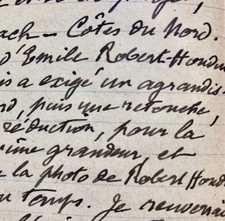 ach — Côtes du Nord.
d'Emile Robert-Houdin
is a exigé un agrandis-
rd, puis une retouche,
réduction, pour la
ême grandeur, et
la photo de Robert Houd
u temps. Je